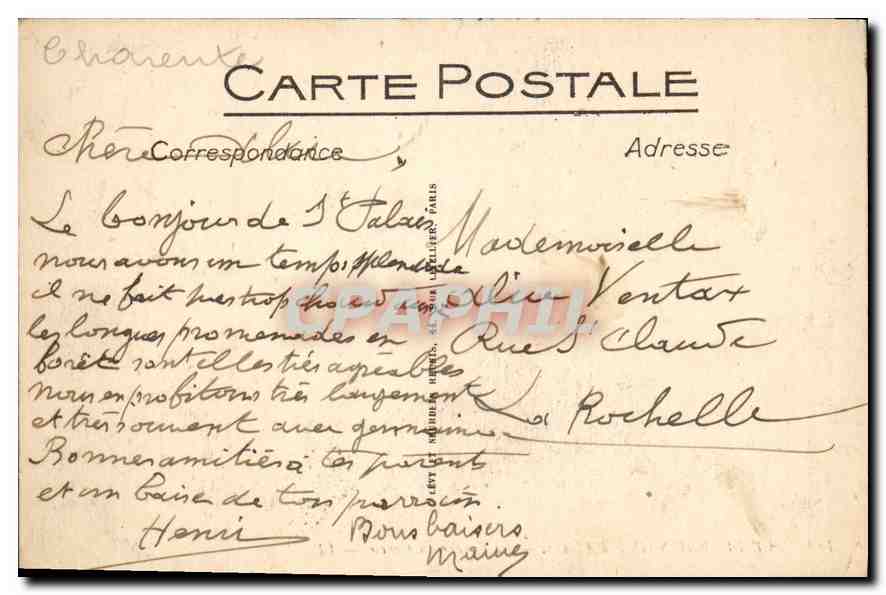 Charente
CARTE POSTALE
Correspondance
Adresse
Chère
Le bonjour de St Palais
nous avons un temps splendide
il ne fait pas trop chaud aussi
les longues promenades en
forêt sont elles très agréables
nous en profitons très largement
et très souvent avec germaine
Bonnes amitiés à tes parents
et un baiser de ton parrain
Henri
Bons baisers
Mademoiselle
Aline Ventax
Rue St Claude
La Rochelle
LÉVY ET NEURDEIN RÉUNIS, 44, RUE LETELLIER, PARIS
CPAPHIL